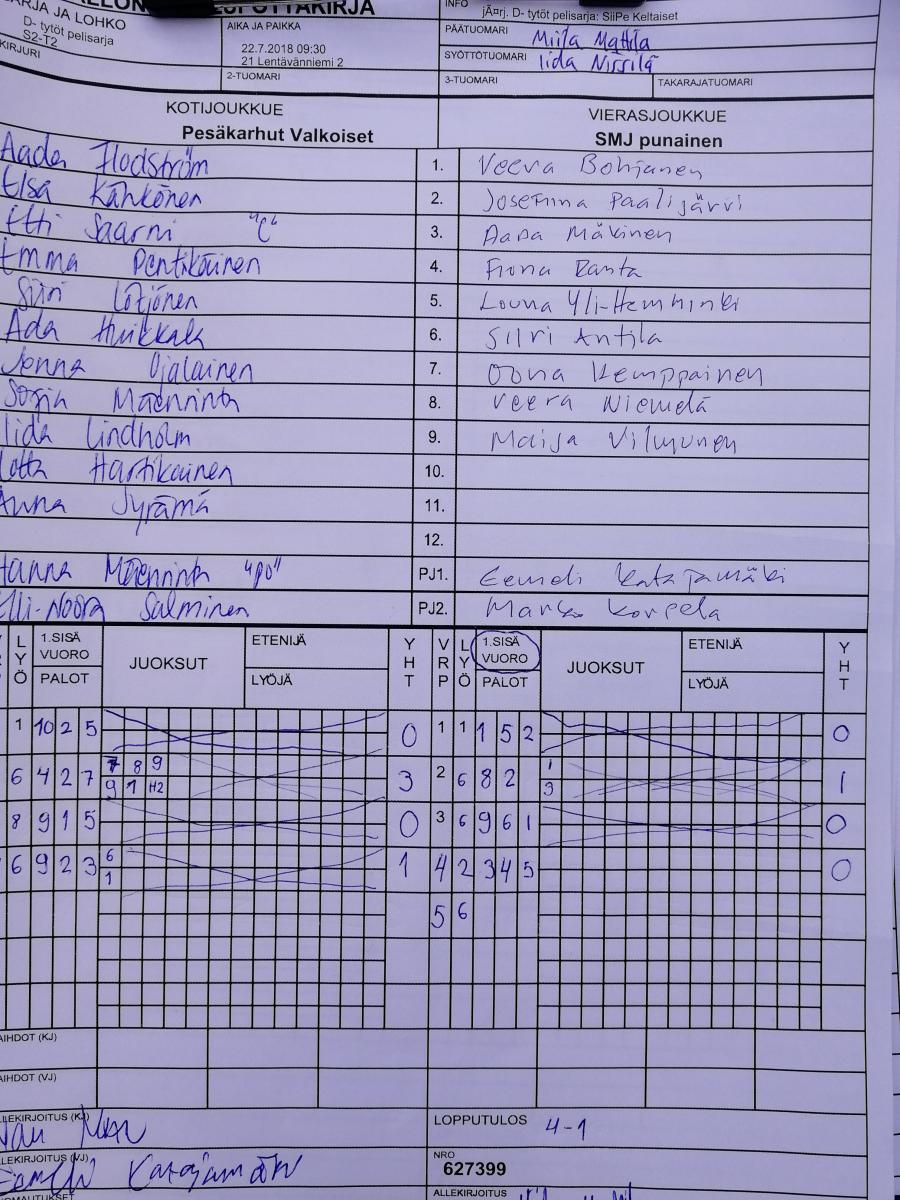 INFO
SARJA JA LOHKO
jÃ¤rj. D- tytöt pelisarja: SiiPe Keltaiset
D- tytöt pelisarja
S2-T2
AIKA JA PAIKKA
PÄÄTUOMARI Miila Mattila
KIRJURI
22.7.2018 09:30
21 Lentävänniemi 2
SYÖTTÖTUOMARI Iida Nissilä
2-TUOMARI
3-TUOMARI
TAKARAJATUOMARI
KOTIJOUKKUE VIERASJOUKKUE
Pesäkarhut Valkoiset SMJ punainen
Aada Flodström 1. Veera Bohjanen
Elsa Kähkönen 2. Josefiina Paalijärvi
Etti Saarni "C" 3. Aada Mäkinen
Emma Pentikäinen 4. Fiona Ranta
Siiri Lötjönen 5. Louna Yli-Hemminki
Ada Huikkala 6. Siiri Antila
Jenna Ojalainen 7. Oona Kemppainen
Sonja Mäenrinta 8. Veera Niemelä
Iida Lindholm 9. Maija Vilmunen
Lotta Hartikainen 10.
Anna Jyrämä 11.
12.
Hanna Mäenrinta "PO" PJ1. Eemeli Katajamäki
Elli-Noora Salminen PJ2. Marko Korpela
LYÖ 1.SISÄ VUORO PALOT JUOKSUT ETENIJÄ LYÖJÄ YHT VRP LYÖ 1.SISÄ VUORO PALOT JUOKSUT ETENIJÄ LYÖJÄ YHT
1 10 2 5 0 1 1 1 5 2 0
7 8 9 1
6 4 2 7 3 2 6 8 2 1
9 1 H2 3
8 9 1 5 0 3 6 9 6 1 0
6
6 9 2 3 1 4 2 3 4 5 0
1
5 6
VAIHDOT (KJ)
VAIHDOT (VJ)
ALLEKIRJOITUS (KJ)
LOPPUTULOS 4-1
ALLEKIRJOITUS (VJ) Eemeli Katajamäki
NRO
627399
HUOMAUTUKSET
ALLEKIRJOITUS